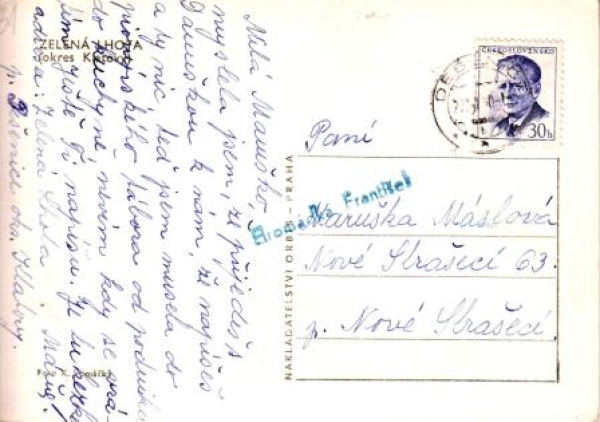 ZELENÁ LHOTA
(okres Klatovy)
Milá Maruško,
myslela jsem, že přijedeš s
Daruškou k nám, že napíšeš
a ty nic teď jsem musela do
pionýrského tábora od podniku
do kuchyně nevím kdy se vrá-
tím ještě Ti napíšu. Je tu hezky
adr: Zelená Lhota
p. okr. Klatovy.
Foto K.
NAKLADATELSTVÍ ORBIS – PRAHA
ČESKOSLOVENSKO
30h
František
Paní
Maruška Máslová
Nové Strašecí 63.
p. Nové Strašecí.